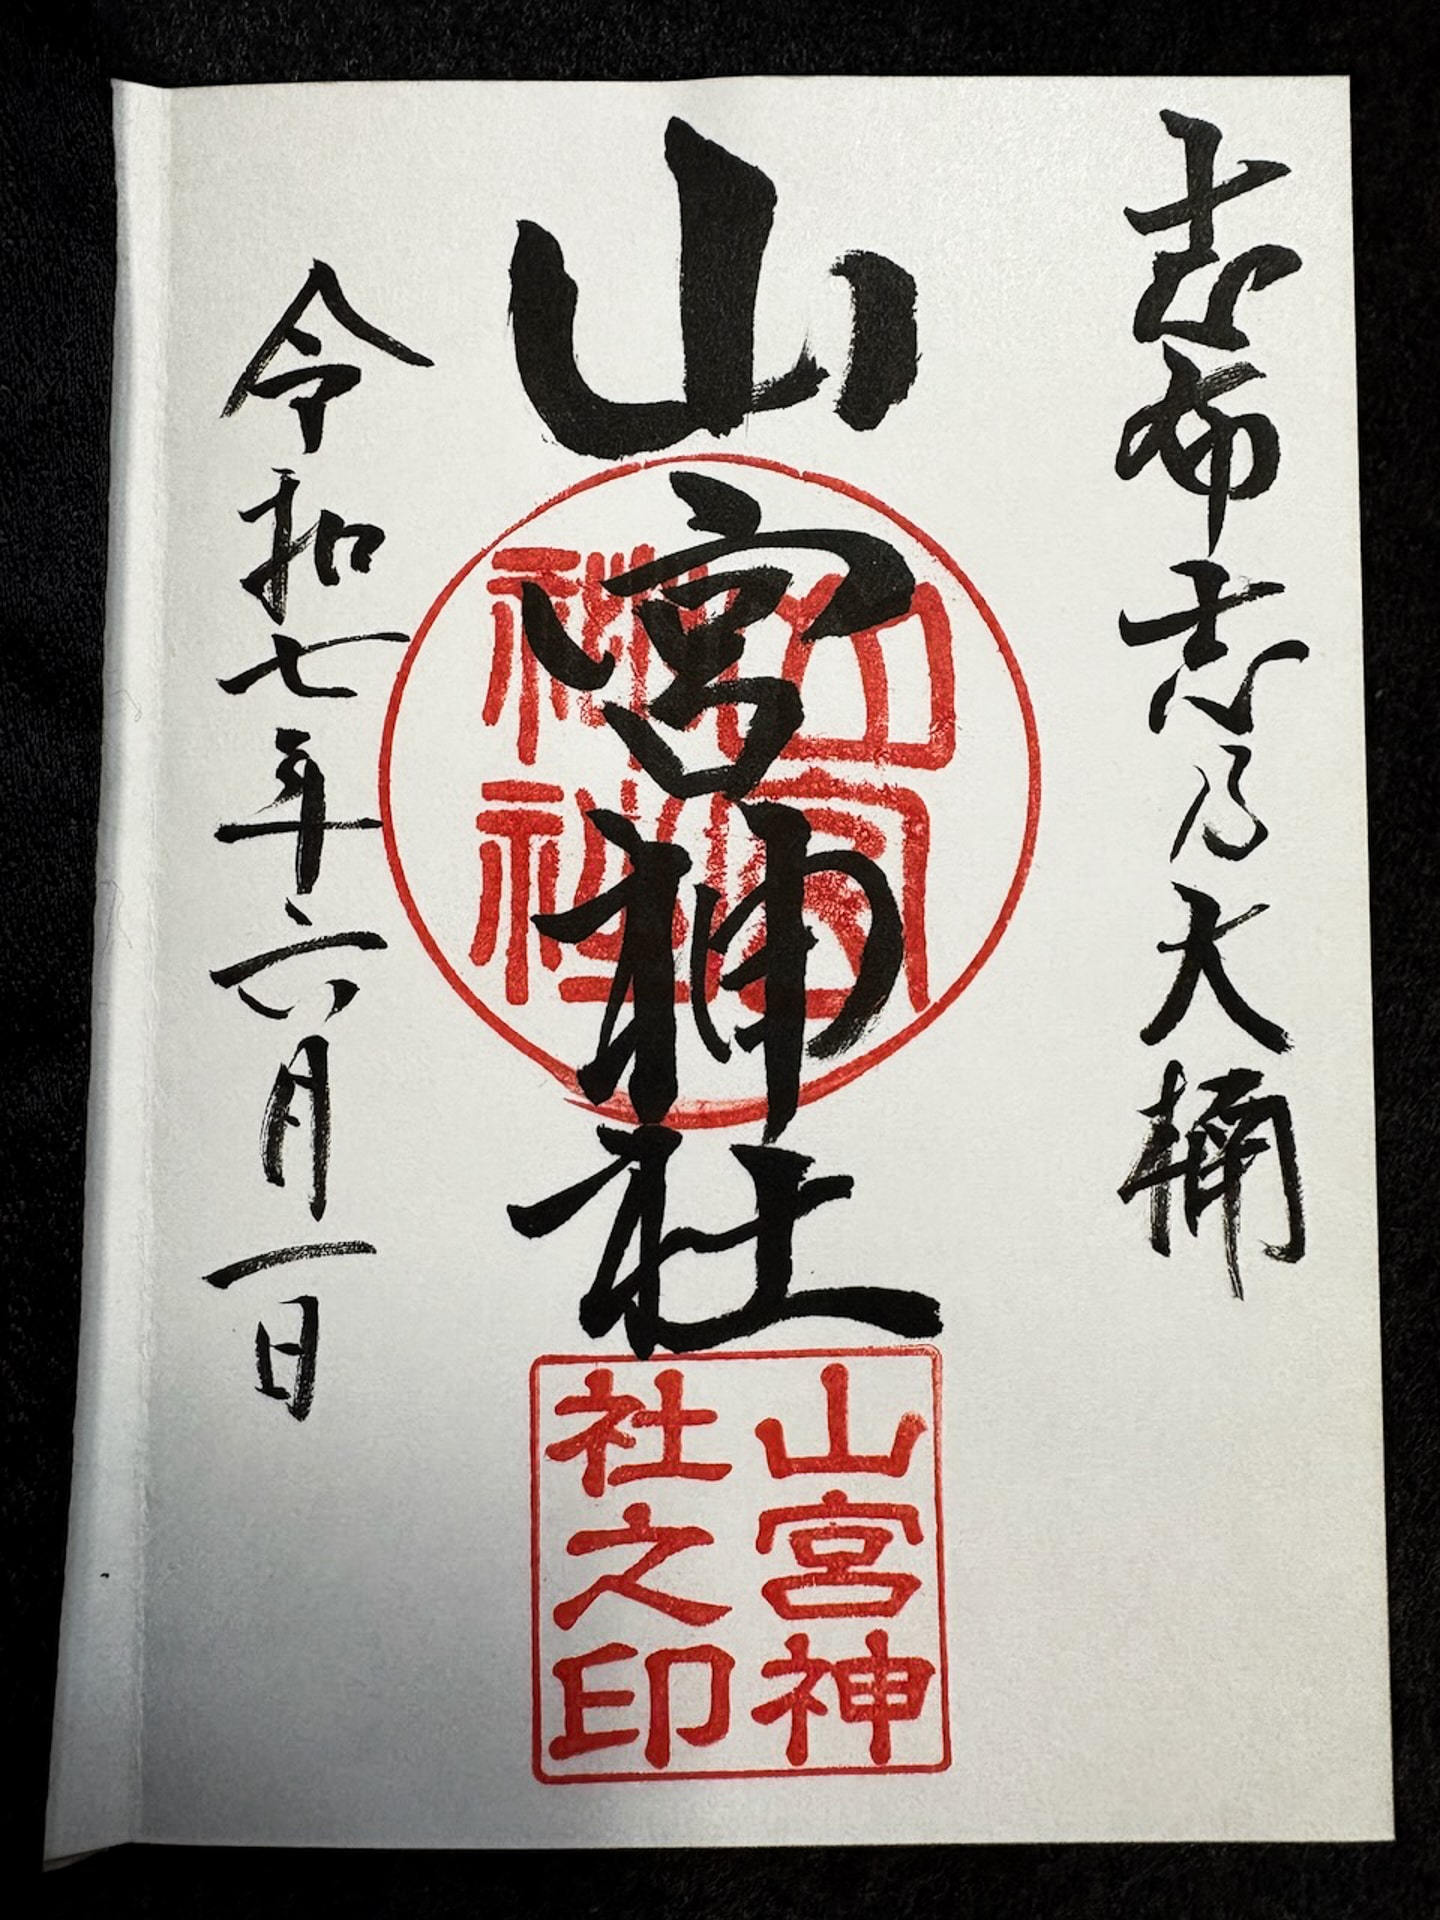 志布志乃大楠
山宮神社
山宮
神社
山宮神
社之印
令和七年六月一日